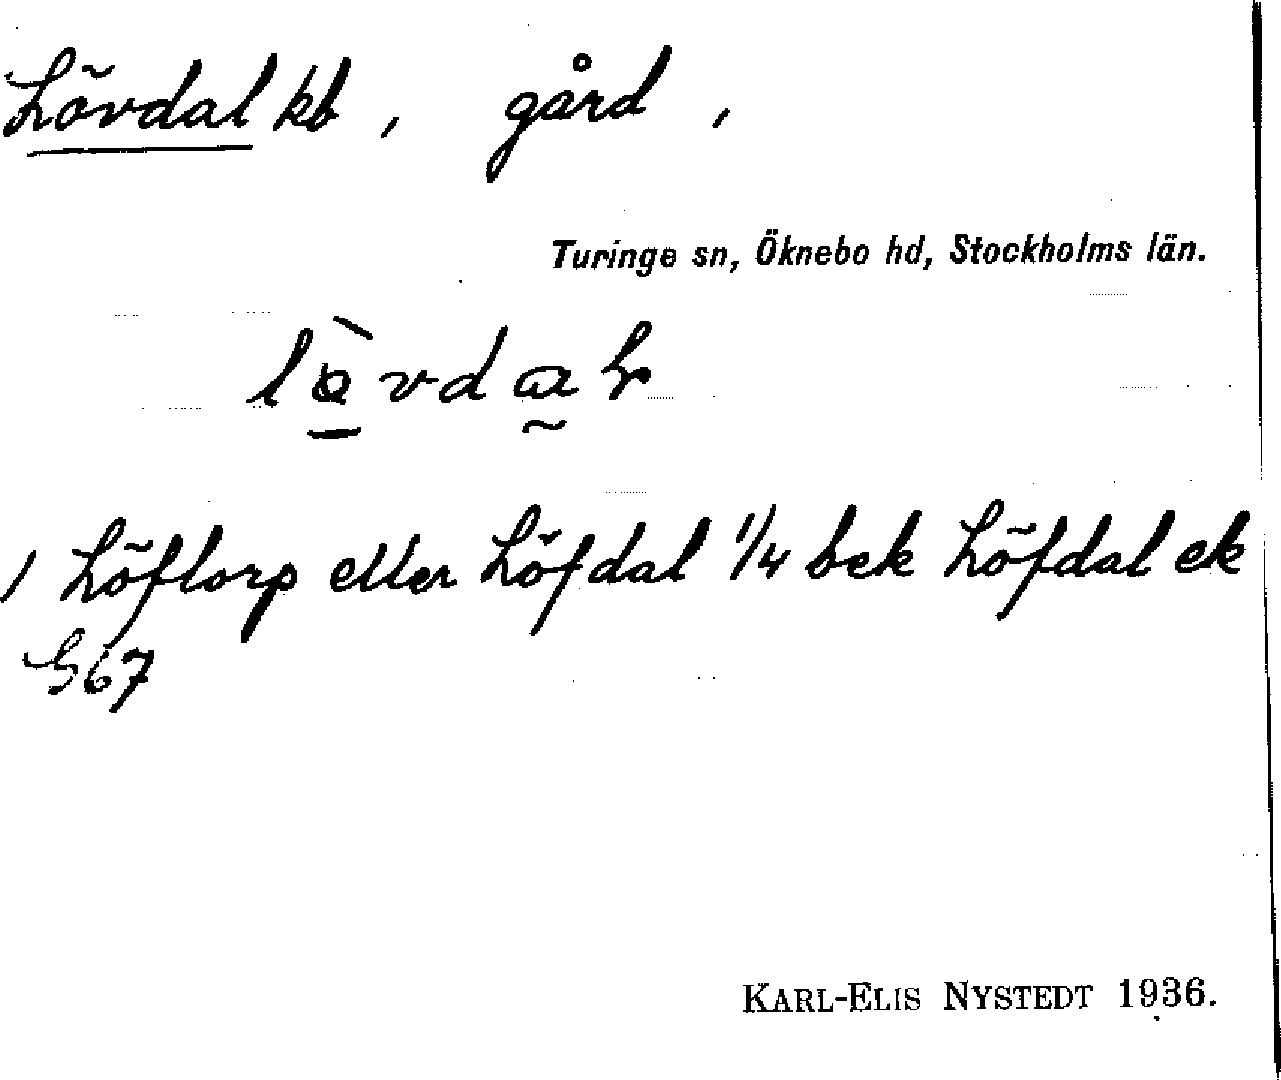 Lövdal kb, gård,
Turinge sn, Öknebo hd, Stockholms län.
1 Löftorp eller Löfdal 1/4 bek Löfdal ek
G 67
KARL-ELIS NYSTEDT 1936.